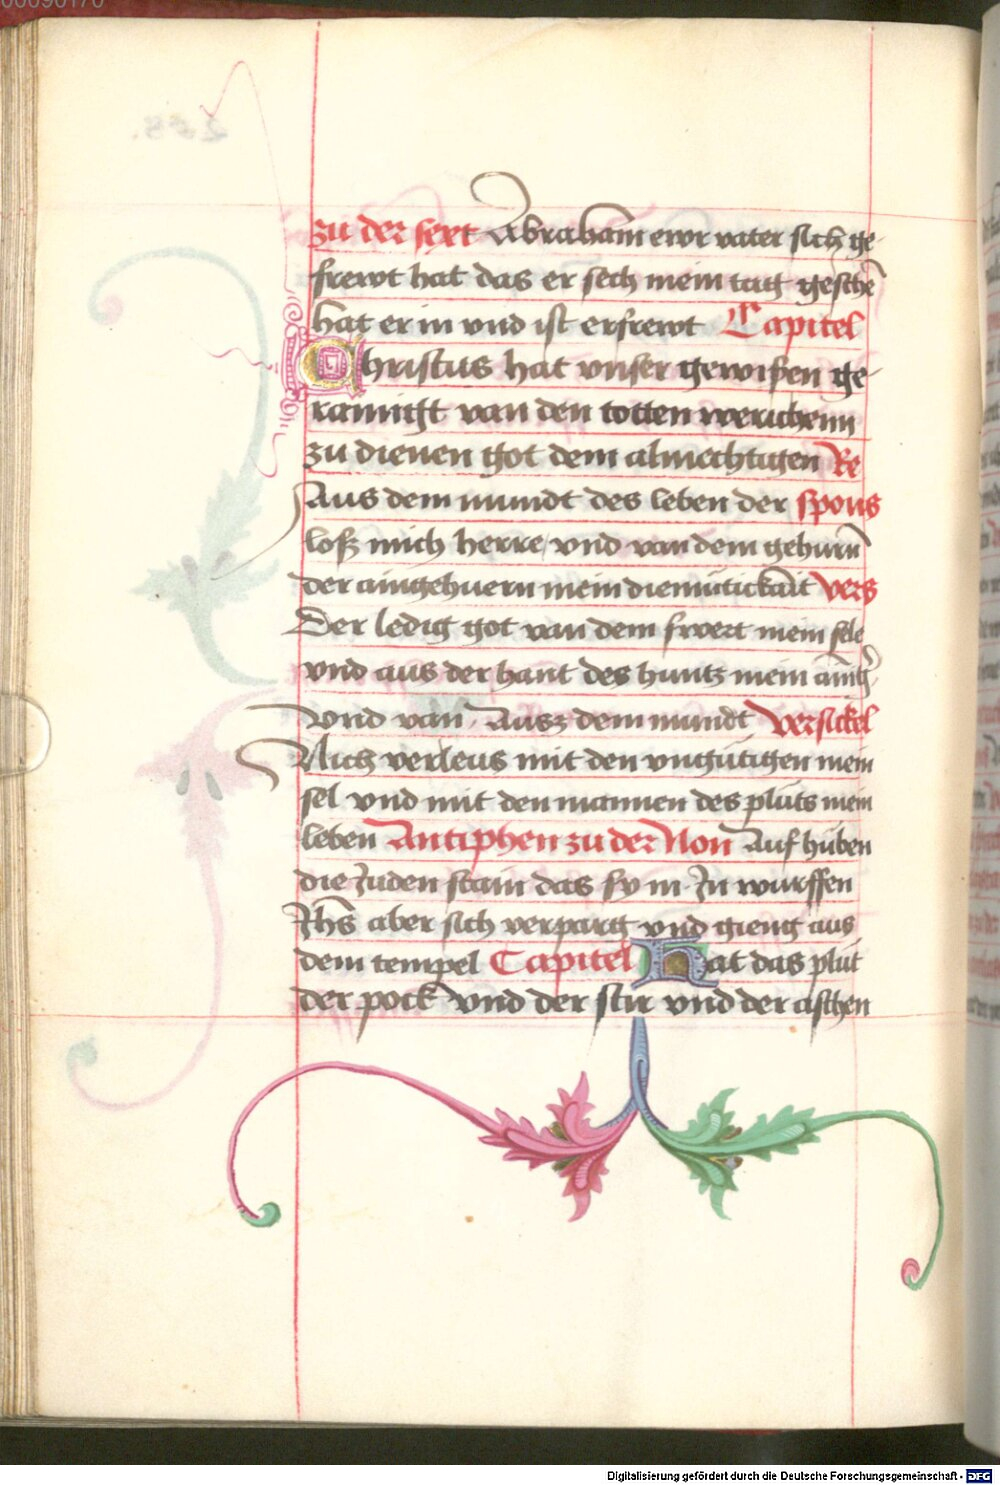 00090170
zu der sext Abraham ewr vater sich ge-
frewt hat das er sech mein tag geschē
hat er in vnd ist erfrewt Capitel
Christus hat vnser gewissen ge-
rainigt van den totten werichenn
zu dienen got dem almechtigen Re
Aus dem mundt des leben der spons
losz mich herre vnd van dem gehurn̄
der aingehuern mein diemutickait vers
Der ledig got van dem swert mein sele
vnd aus der hant des huntz mein aing
Vnd van Ausz dem mundt versickel
Nich verleus mit den vngutigen mein
sel vnd mit den mannen des pluts mein
leben Antiphen zu der Non Auf huben
die Juden stain das sy in Jn wurffen
Jhs aber sich verparg vnd gieng aus
dem tempel Capitel Hat das plut
der pock vnd der stir vnd der aschen
Digitalisierung gefördert durch die Deutsche Forschungsgemeinschaft - DFG